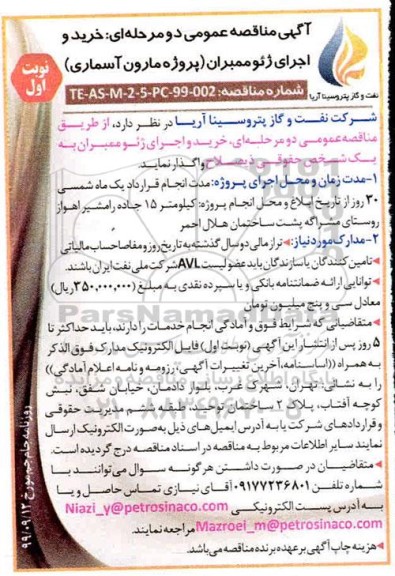 آگهی مناقصه عمومی دو مرحله‌ای: خرید و
اجرای ژئوممبران (پروژه مارون آسماری)
نوبت
اول
نفت و گاز پتروسینا آریا
شماره مناقصه: TE-AS-M-2-5-PC-99-002
شرکت نفت و گاز پتروسینا آریا در نظر دارد، از طریق
مناقصه عمومی دو مرحله‌ای، خرید و اجرای ژئوممبران به
یک شخص حقوقی ذیصلاح واگذار نماید.
۱-مدت زمان و محل اجرای پروژه: مدت انجام قرارداد یک ماه شمسی
۳۰ روز از تاریخ ابلاغ و محل انجام پروژه: کیلومتر ۱۵ جاده رامشیر اهواز
روستای مشراگه پشت ساختمان هلال احمر
۲-مدارک مورد نیاز: تراز مالی دو سال گذشته به تاریخ روز و مفاصا حساب مالیاتی
تامین کنندگان یا سازندگان باید عضو لیست AVL شرکت ملی نفت ایران باشند.
توانایی ارائه ضمانتنامه بانکی و یا سپرده نقدی به مبلغ (۳۵۰,۰۰۰,۰۰۰ ریال)
معادل سی و پنج میلیون تومان
متقاضیانی که شرایط فوق و آمادگی انجام خدمات را دارند، باید حداکثر تا
۵ روز پس از انتشار این آگهی (نوبت اول) فایل الکترونیک مدارک فوق الذکر
به همراه ((اساسنامه، آخرین تغییرات آگهی، رزومه و نامه اعلام آمادگی))
را به نشانی: تهران، شهرک غرب، بلوار دادمان، خیابان شفق، نبش
کوچه آفتاب، پلاک ۲، ساختمان، طبقه پنجم مدیریت حقوقی
و قراردادهای شرکت یا به آدرس ایمیل‌های ذیل به صورت الکترونیک ارسال
نمایند سایر اطلاعات مربوط به مناقصه در اسناد مناقصه درج گردیده است.
متقاضیان در صورت داشتن هرگونه سوال می‌توانند با
شماره تلفن ۰۹۱۷۷۲۳۶۸۰۱ آقای نیازی تماس حاصل و یا
به آدرس پست الکترونیکی Niazi_y@petrosinaco.com
Mazroei_m@petrosinaco.com مراجعه نمایند.
هزینه چاپ آگهی بر عهده برنده مناقصه می‌باشد.
روزنامه جام جم مورخ ۹۹/۰۹/۱۲
ParsNamadData